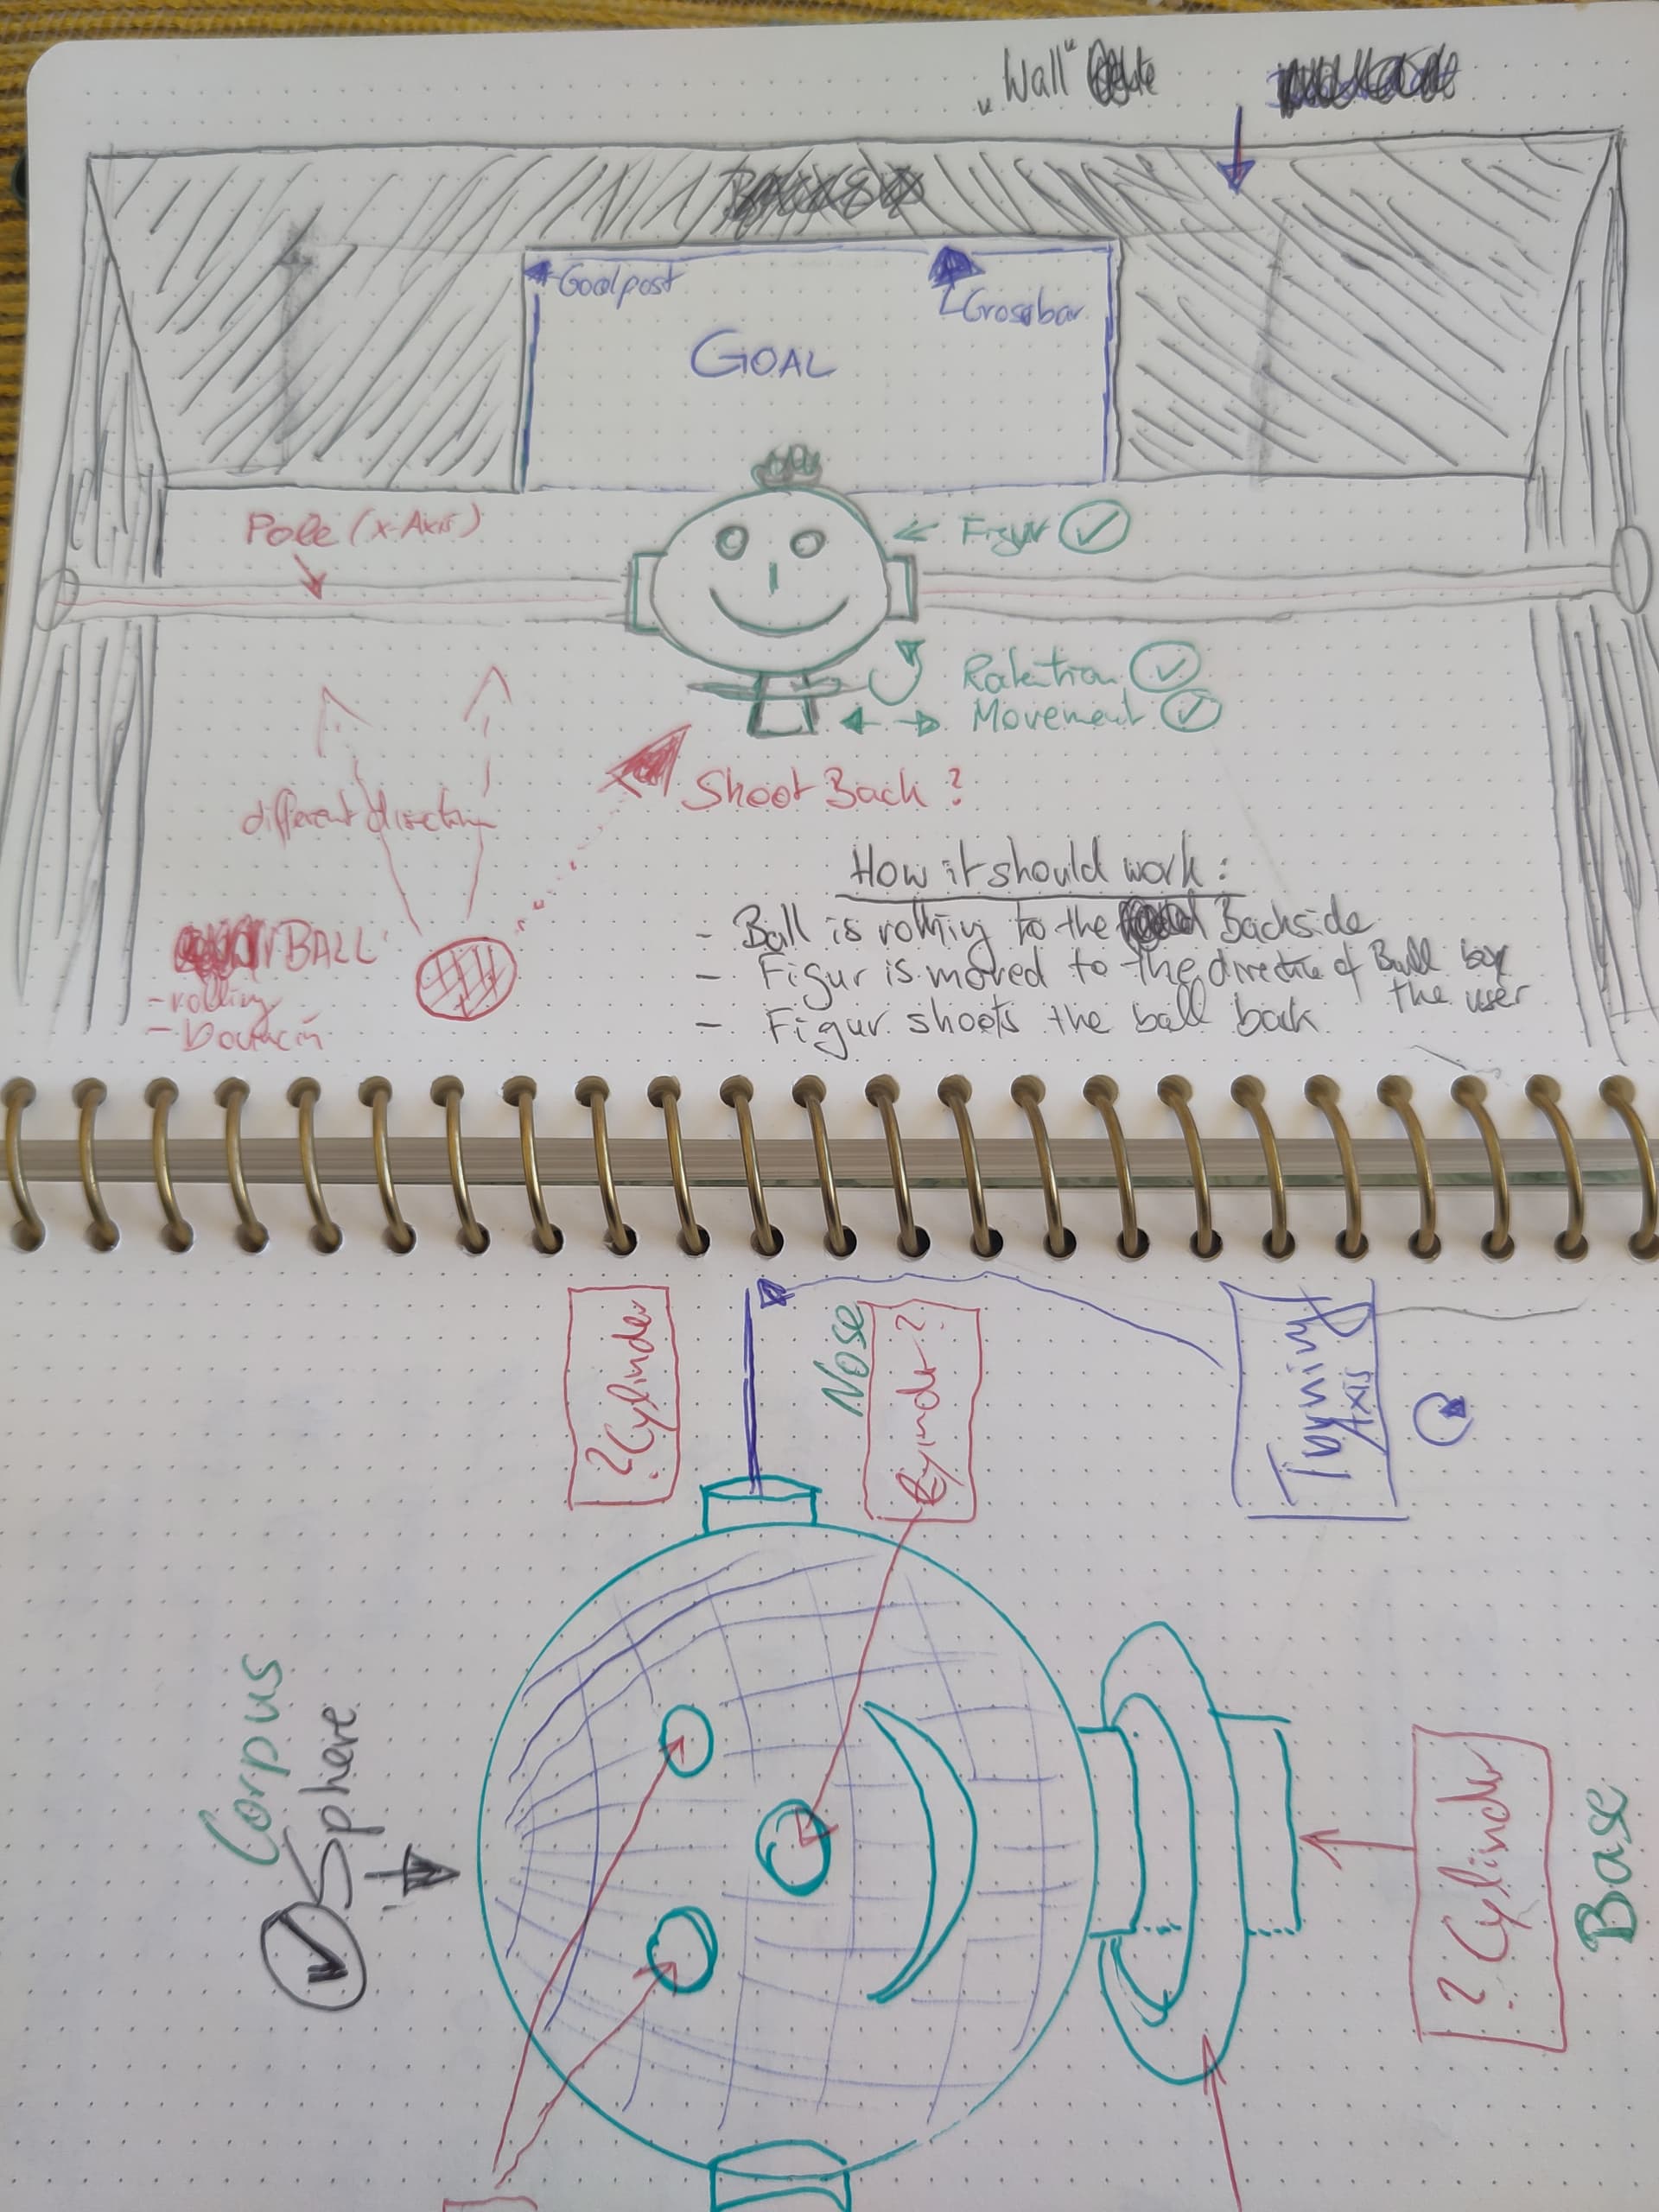 „Wall"
Goalpost
Crossbar
GOAL
Pole (x-Axis)
Figur
Rotation
Movement
Shoot Back?
different direction
BALL
- rolling
How it should work:
- Ball is rolling to the Backside
- Figur is moved to the direction of Ball by
the user
- Figur shoots the ball back
? Cylinder
Nose
Cylinder?
Turning
Axis
Corpus
Sphere
? Cylinder
Base